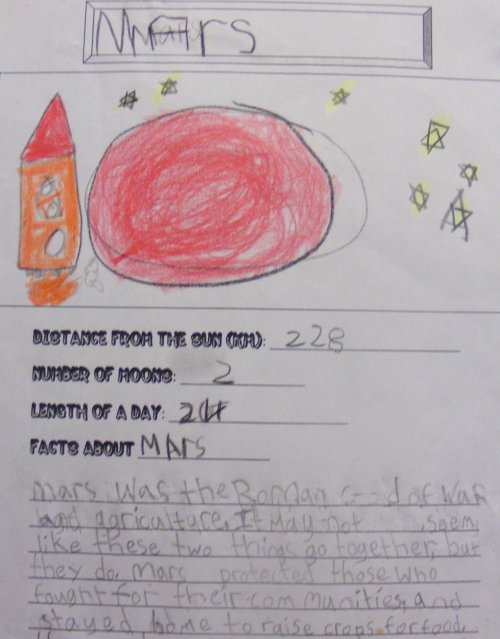 Mars
DISTANCE FROM THE SUN (KM): 228
NUMBER OF MOONS: 2
LENGTH OF A DAY: 24
FACTS ABOUT MARS
Mars was the Roman God of War
and agriculture. It may not seem
like these two things go together, but
they do. Mars protected those who
fought for their communities, and
stayed home to raise crops for food.